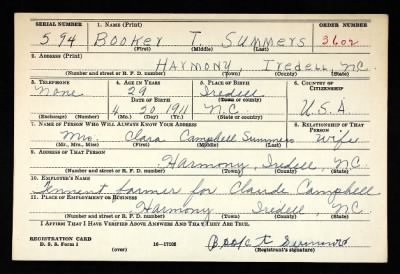 SERIAL NUMBER 1. NAME (Print) ORDER NUMBER
594 Booker T. Summers 3602
(First) (Middle) (Last)
2. ADDRESS (Print)
HARMONY, Iredell, N.C.
(Number and street or R. F. D. number) (Town) (County) (State)
3. TELEPHONE 4. AGE IN YEARS 5. PLACE OF BIRTH 6. COUNTRY OF CITIZENSHIP
None 29 Iredell
DATE OF BIRTH (Town or county)
4 20 1911 N.C. U.S.A
(Exchange) (Number) (Mo.) (Day) (Yr.) (State or country)
7. NAME OF PERSON WHO WILL ALWAYS KNOW YOUR ADDRESS 8. RELATIONSHIP OF THAT PERSON
Mrs. Clara Campbell Summers Wife
(Mr., Mrs., Miss) (First) (Middle) (Last)
9. ADDRESS OF THAT PERSON
Harmony, Iredell, N.C.
(Number and street or R. F. D. number) (Town) (County) (State)
10. EMPLOYER'S NAME
Tennent farmer for Claude Campbell
11. PLACE OF EMPLOYMENT OR BUSINESS
Harmony Iredell, N.C.
(Number and street or R. F. D. number) (Town) (County) (State)
I AFFIRM THAT I HAVE VERIFIED ABOVE ANSWERS AND THAT THEY ARE TRUE.
REGISTRATION CARD
D. S. S. Form 1 16—17105
(over) (Registrant's signature)